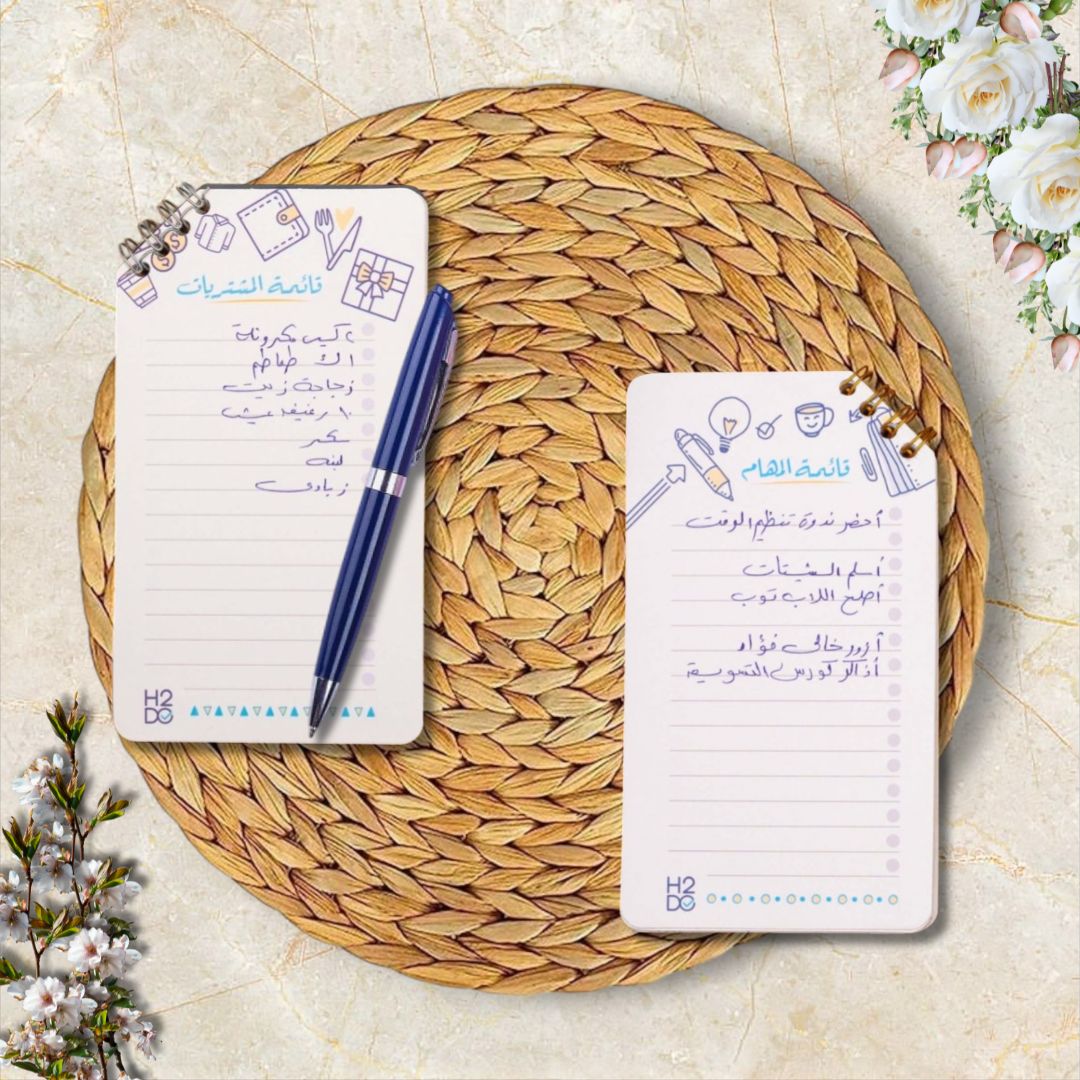 قائمة المشتريات
٢ كيس مكرونة
١ ك طماطم
زجاجة زيت
١٠ رغيف عيش
سكر
لبنه
زبادى
H2
DO
قائمة المهام
أحضر ندوة تنظيم الوقت
أسلم الشيتات
أصلح اللاب توب
أزور خالى فؤاد
أذاكر كورس التسويق
H2
DO